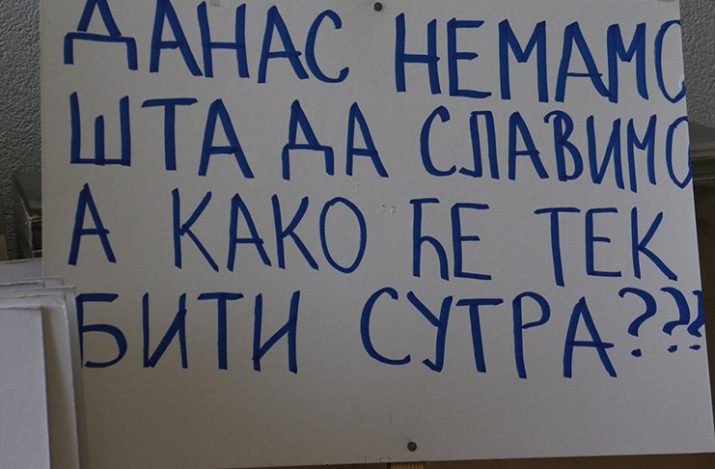 ДАНАС НЕМАМО
ШТА ДА СЛАВИМО
А КАКО ЋЕ ТЕК
БИТИ СУТРА???